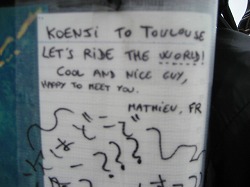 KOENJI TO TOULOUSE
LET'S RIDE THE WORLD!
COOL AND NICE GUY,
HAPPY TO MEET YOU.
MATHIEU. FR
???
???